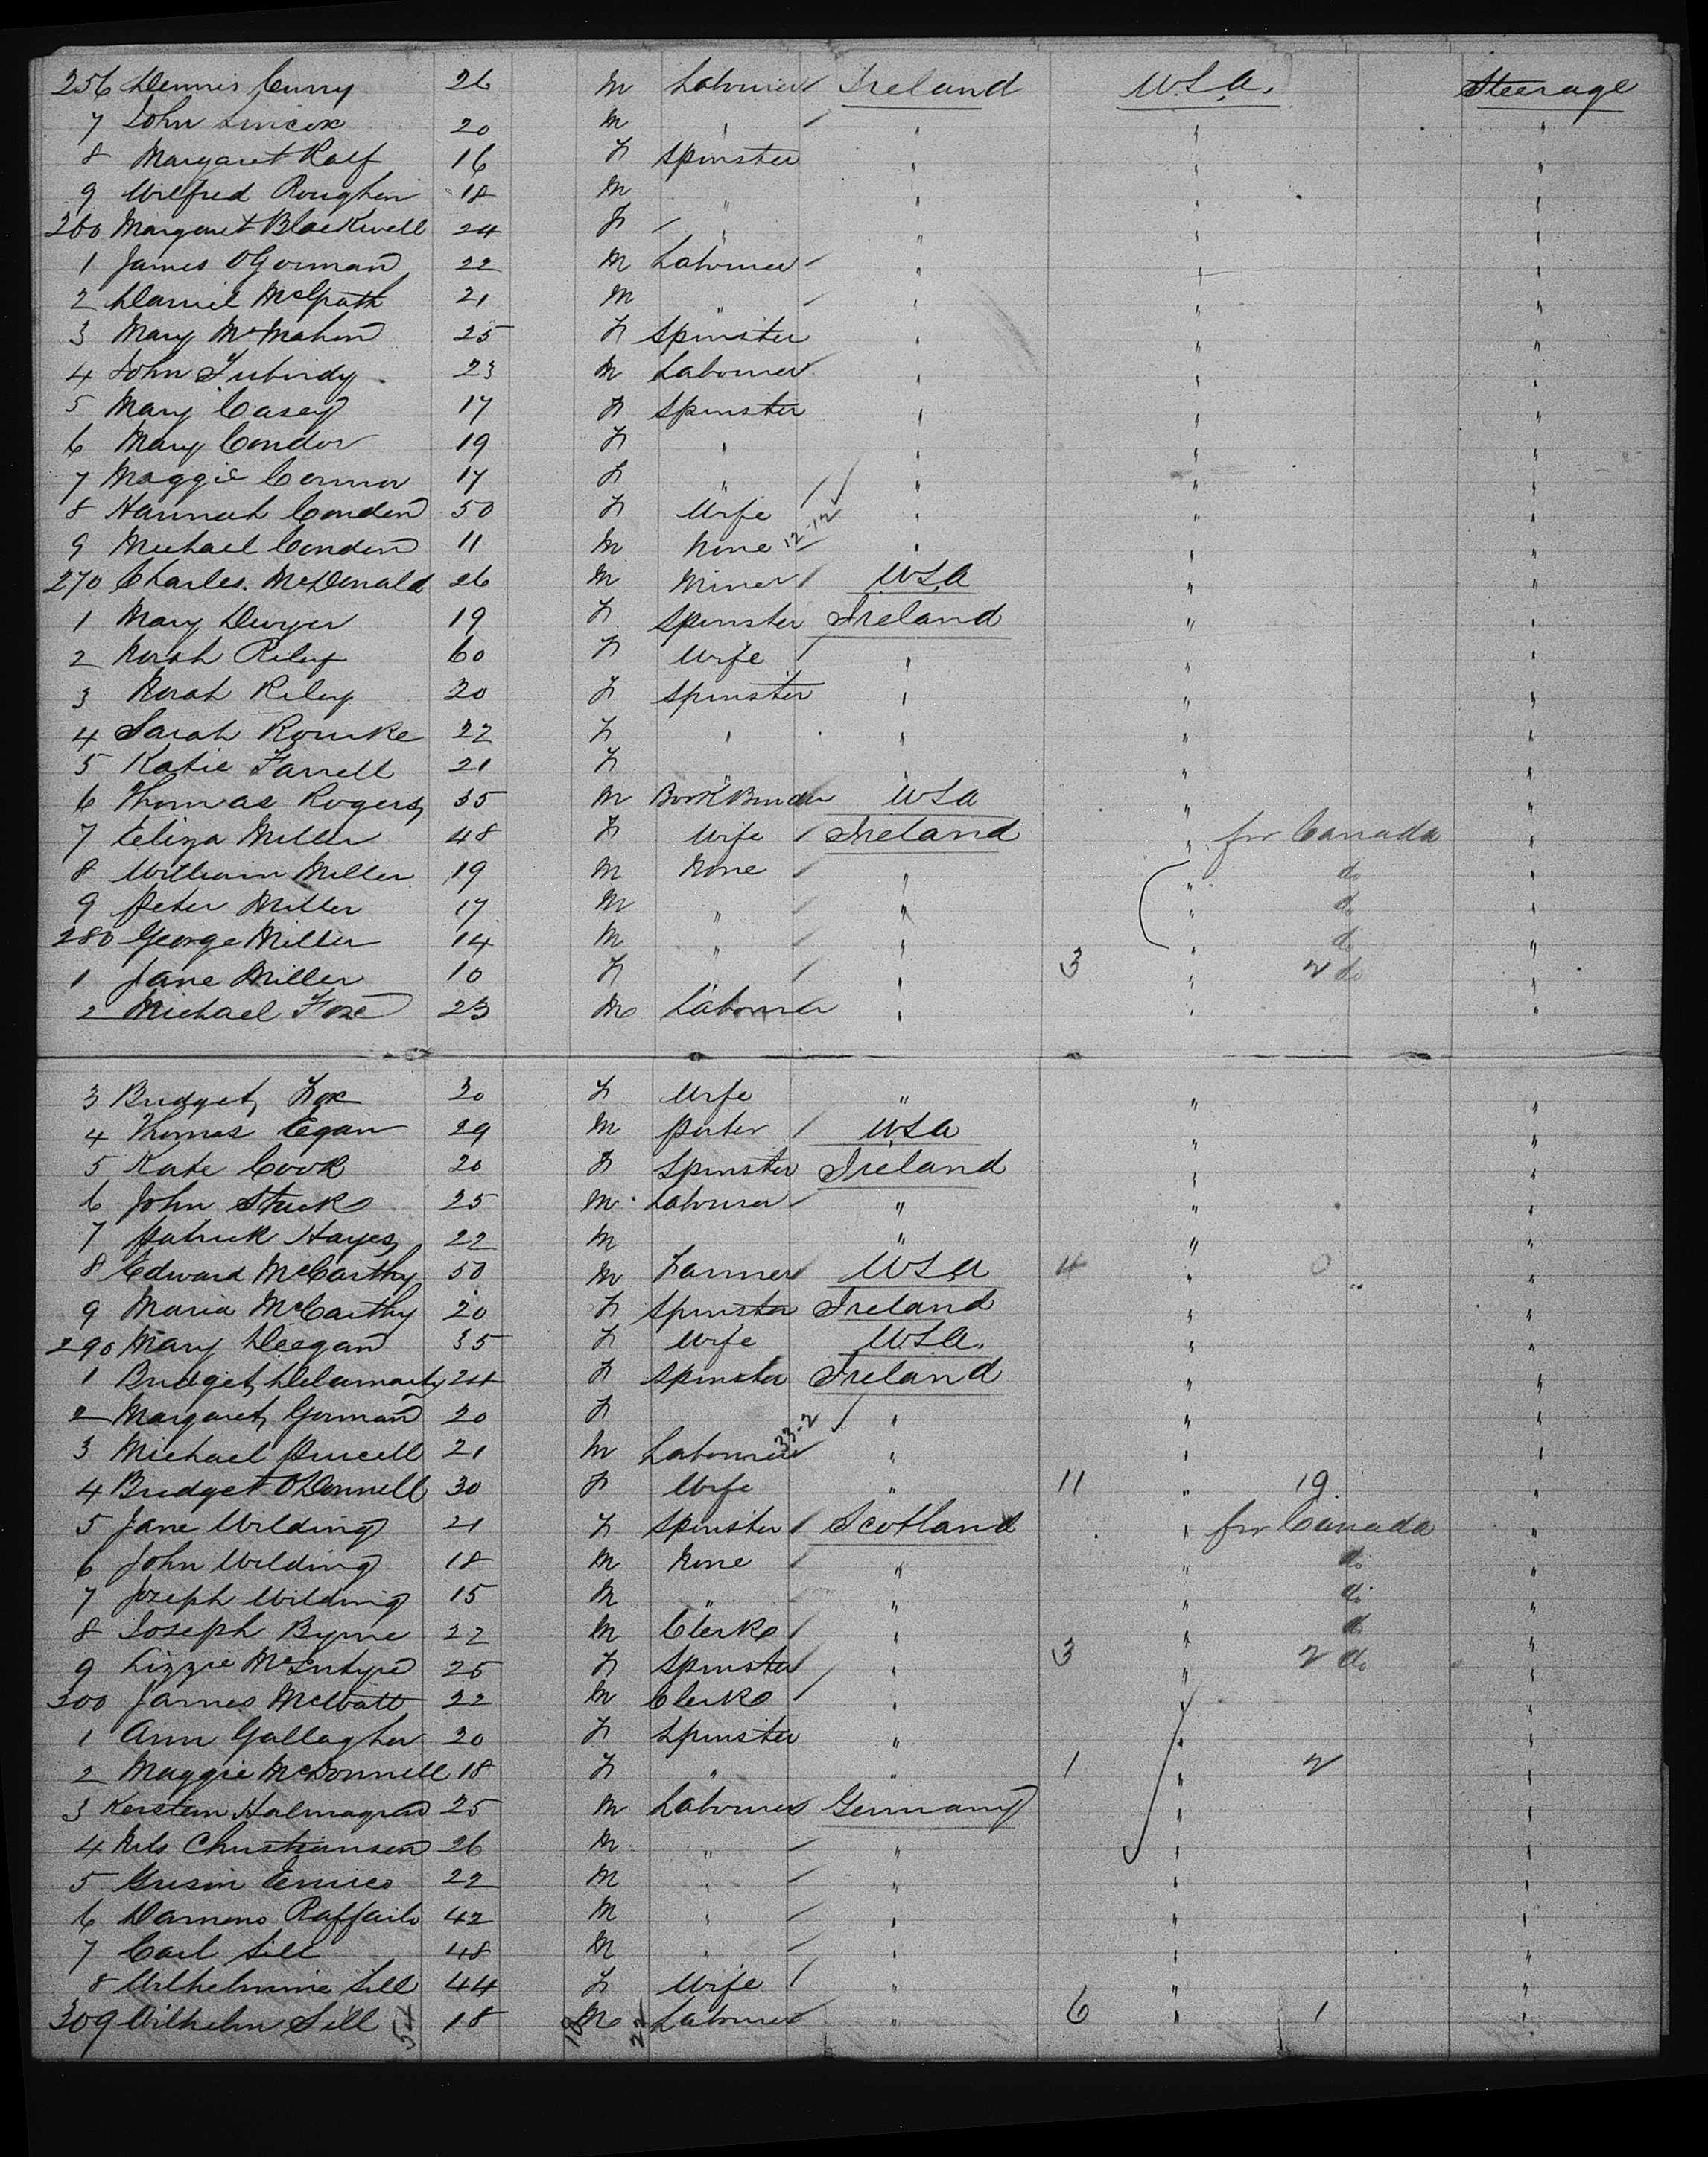 256 Dennis Curry 26 M Labourer Ireland U.S.A. Steerage
7 John 20 M " " " "
8 Margaret Ralf 16 F Spinster " " "
9 Wilfred Roughan 18 M " " " "
260 Margaret Blackwell 24 F " " " "
1 James O'Gorman 22 M Labourer " " "
2 Daniel McGrath 21 M " " " "
3 Mary McMahon 25 F Spinster " " "
4 John 23 M Labourer " " "
5 Mary Casey 17 F Spinster " " "
6 Mary Condon 19 F " " " "
7 Maggie Connor 17 F " " " "
8 Hannah Condon 50 F Wife " " "
9 Michael Condon 11 M None " " "
270 Charles McDonald 26 M Miner USA " "
1 Mary Dwyer 19 F Spinster Ireland " "
2 Norah Riley 60 F Wife " " "
3 Norah Riley 20 F Spinster " " "
4 Sarah Rourke 22 F " " " "
5 Katie Farrell 21 F " " " "
6 Thomas Rogers 35 M Book Binder USA " "
7 Eliza Miller 48 F Wife Ireland " for Canada "
8 William Miller 19 M None " " do "
9 Peter Miller 17 M " " " do "
280 George Miller 14 M " " " do "
1 Jane Miller 10 F " " 3 " 2 do "
2 Michael Fox 23 M Labourer " " "
3 Bridget Fox 20 F Wife " " "
4 Thomas Egan 29 M Porter USA " "
5 Kate Cook 20 F Spinster Ireland " "
6 John Stack 25 M Labourer " " "
7 Patrick Hayes 22 M " " "
8 Edward McCarthy 50 M Farmer USA 4 " 0 "
9 Maria McCarthy 20 F Spinster Ireland " "
290 Mary Deegan 35 F Wife USA. " "
1 Bridget 24 F Spinster Ireland " "
2 Margaret Gorman 20 F " " "
3 Michael Purcell 21 M Labourer 33-2 " " "
4 Bridget O'Donnell 30 F Wife " 11 " 19 "
5 Jane Wilding 21 F Spinster Scotland " for Canada "
6 John Wilding 18 M None " " do "
7 Joseph Wilding 15 M " " " do "
8 Joseph Byrne 22 M Clerk " " do "
9 Lizzie McIntyre 25 F Spinster " 3 " 2 do "
300 James McWatt 22 M Clerk " " "
1 Ann Gallagher 20 F Spinster " " "
2 Maggie McDonnell 18 F " " 1 " 2 "
3 25 M Labourer Germany " "
4 Nils Christiansen 26 M " " " "
5 22 M " " " "
6 42 M " " " "
7 Carl Sill 48 M " " " "
8 Wilhelmine Sill 44 F Wife " " "
309 Wilhelm Sill 54 18 18 M 22 Labourer " 6 " 1 "